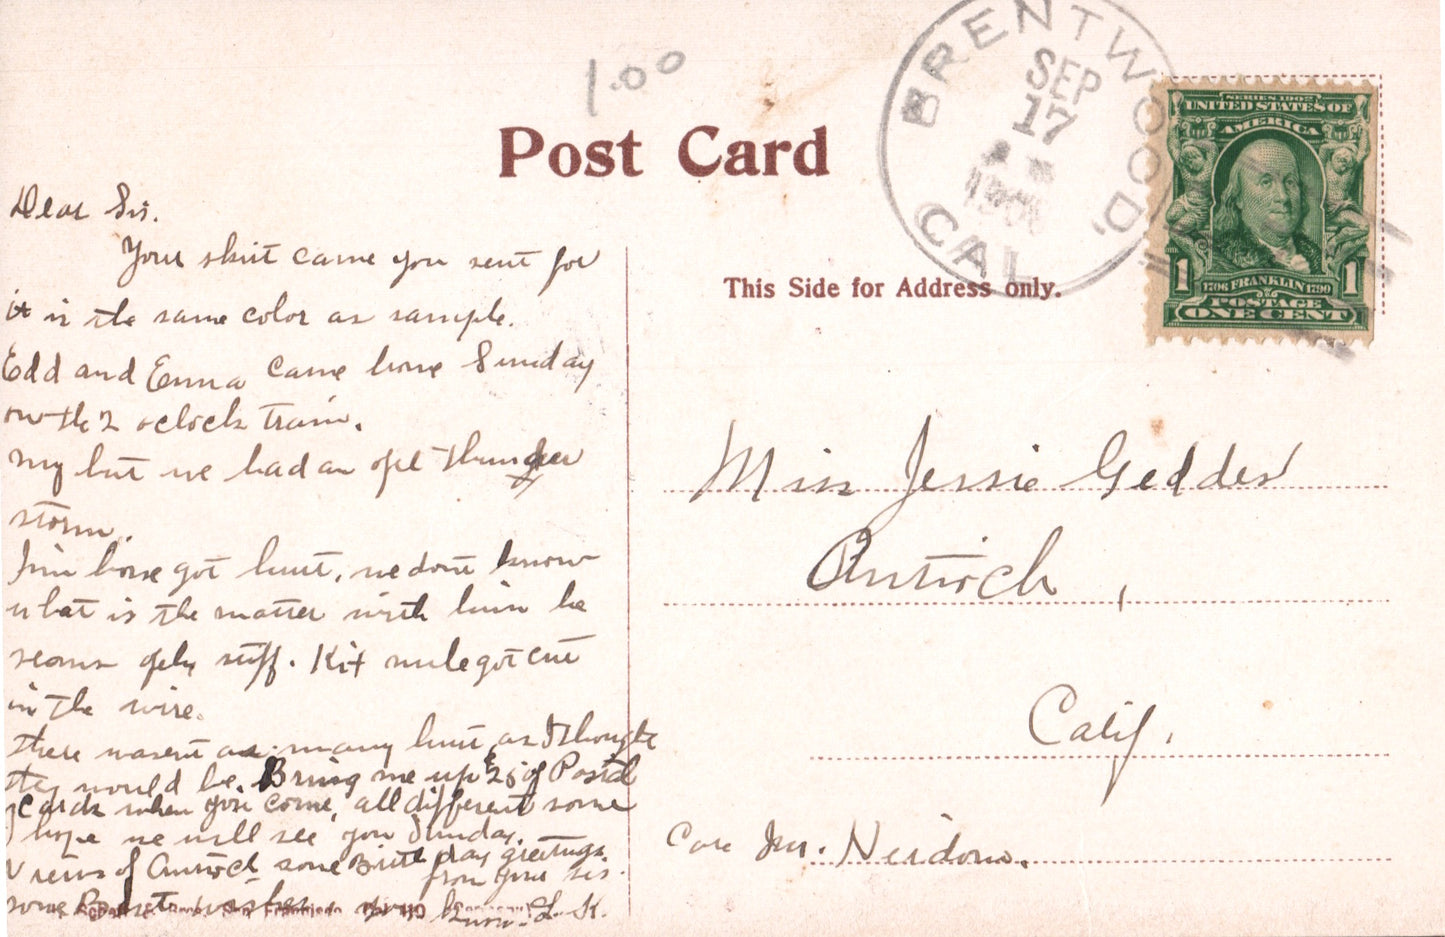 1.00
Post Card
BRENTWOOD,
SEP
17
CAL
SERIES 1902
UNITED STATES OF
AMERICA
1 1
1706 FRANKLIN 1790
POSTAGE
ONE CENT
This Side for Address only.
Dear Sis.
Your skirt came you sent for
it is the same color as sample.
Edd and Emma came home Sunday
on the 2 oclock train.
my but we had an thunder
storm.
Jim horse got hurt, we dont know
what is the matter with him he
seams stiff. Kit mule got cut
in the wire.
there wasent as many hurt as I thought
they would be. Bring me up of Postal
cards when you come, all different some
I hope we will see you Sunday.
views of Antioch some Birth day greetings
from your sis.
some Best wishes you know L. K.
Miss Jessie Geddes
Antioch,
Calif.
Care Mr. Neidom.